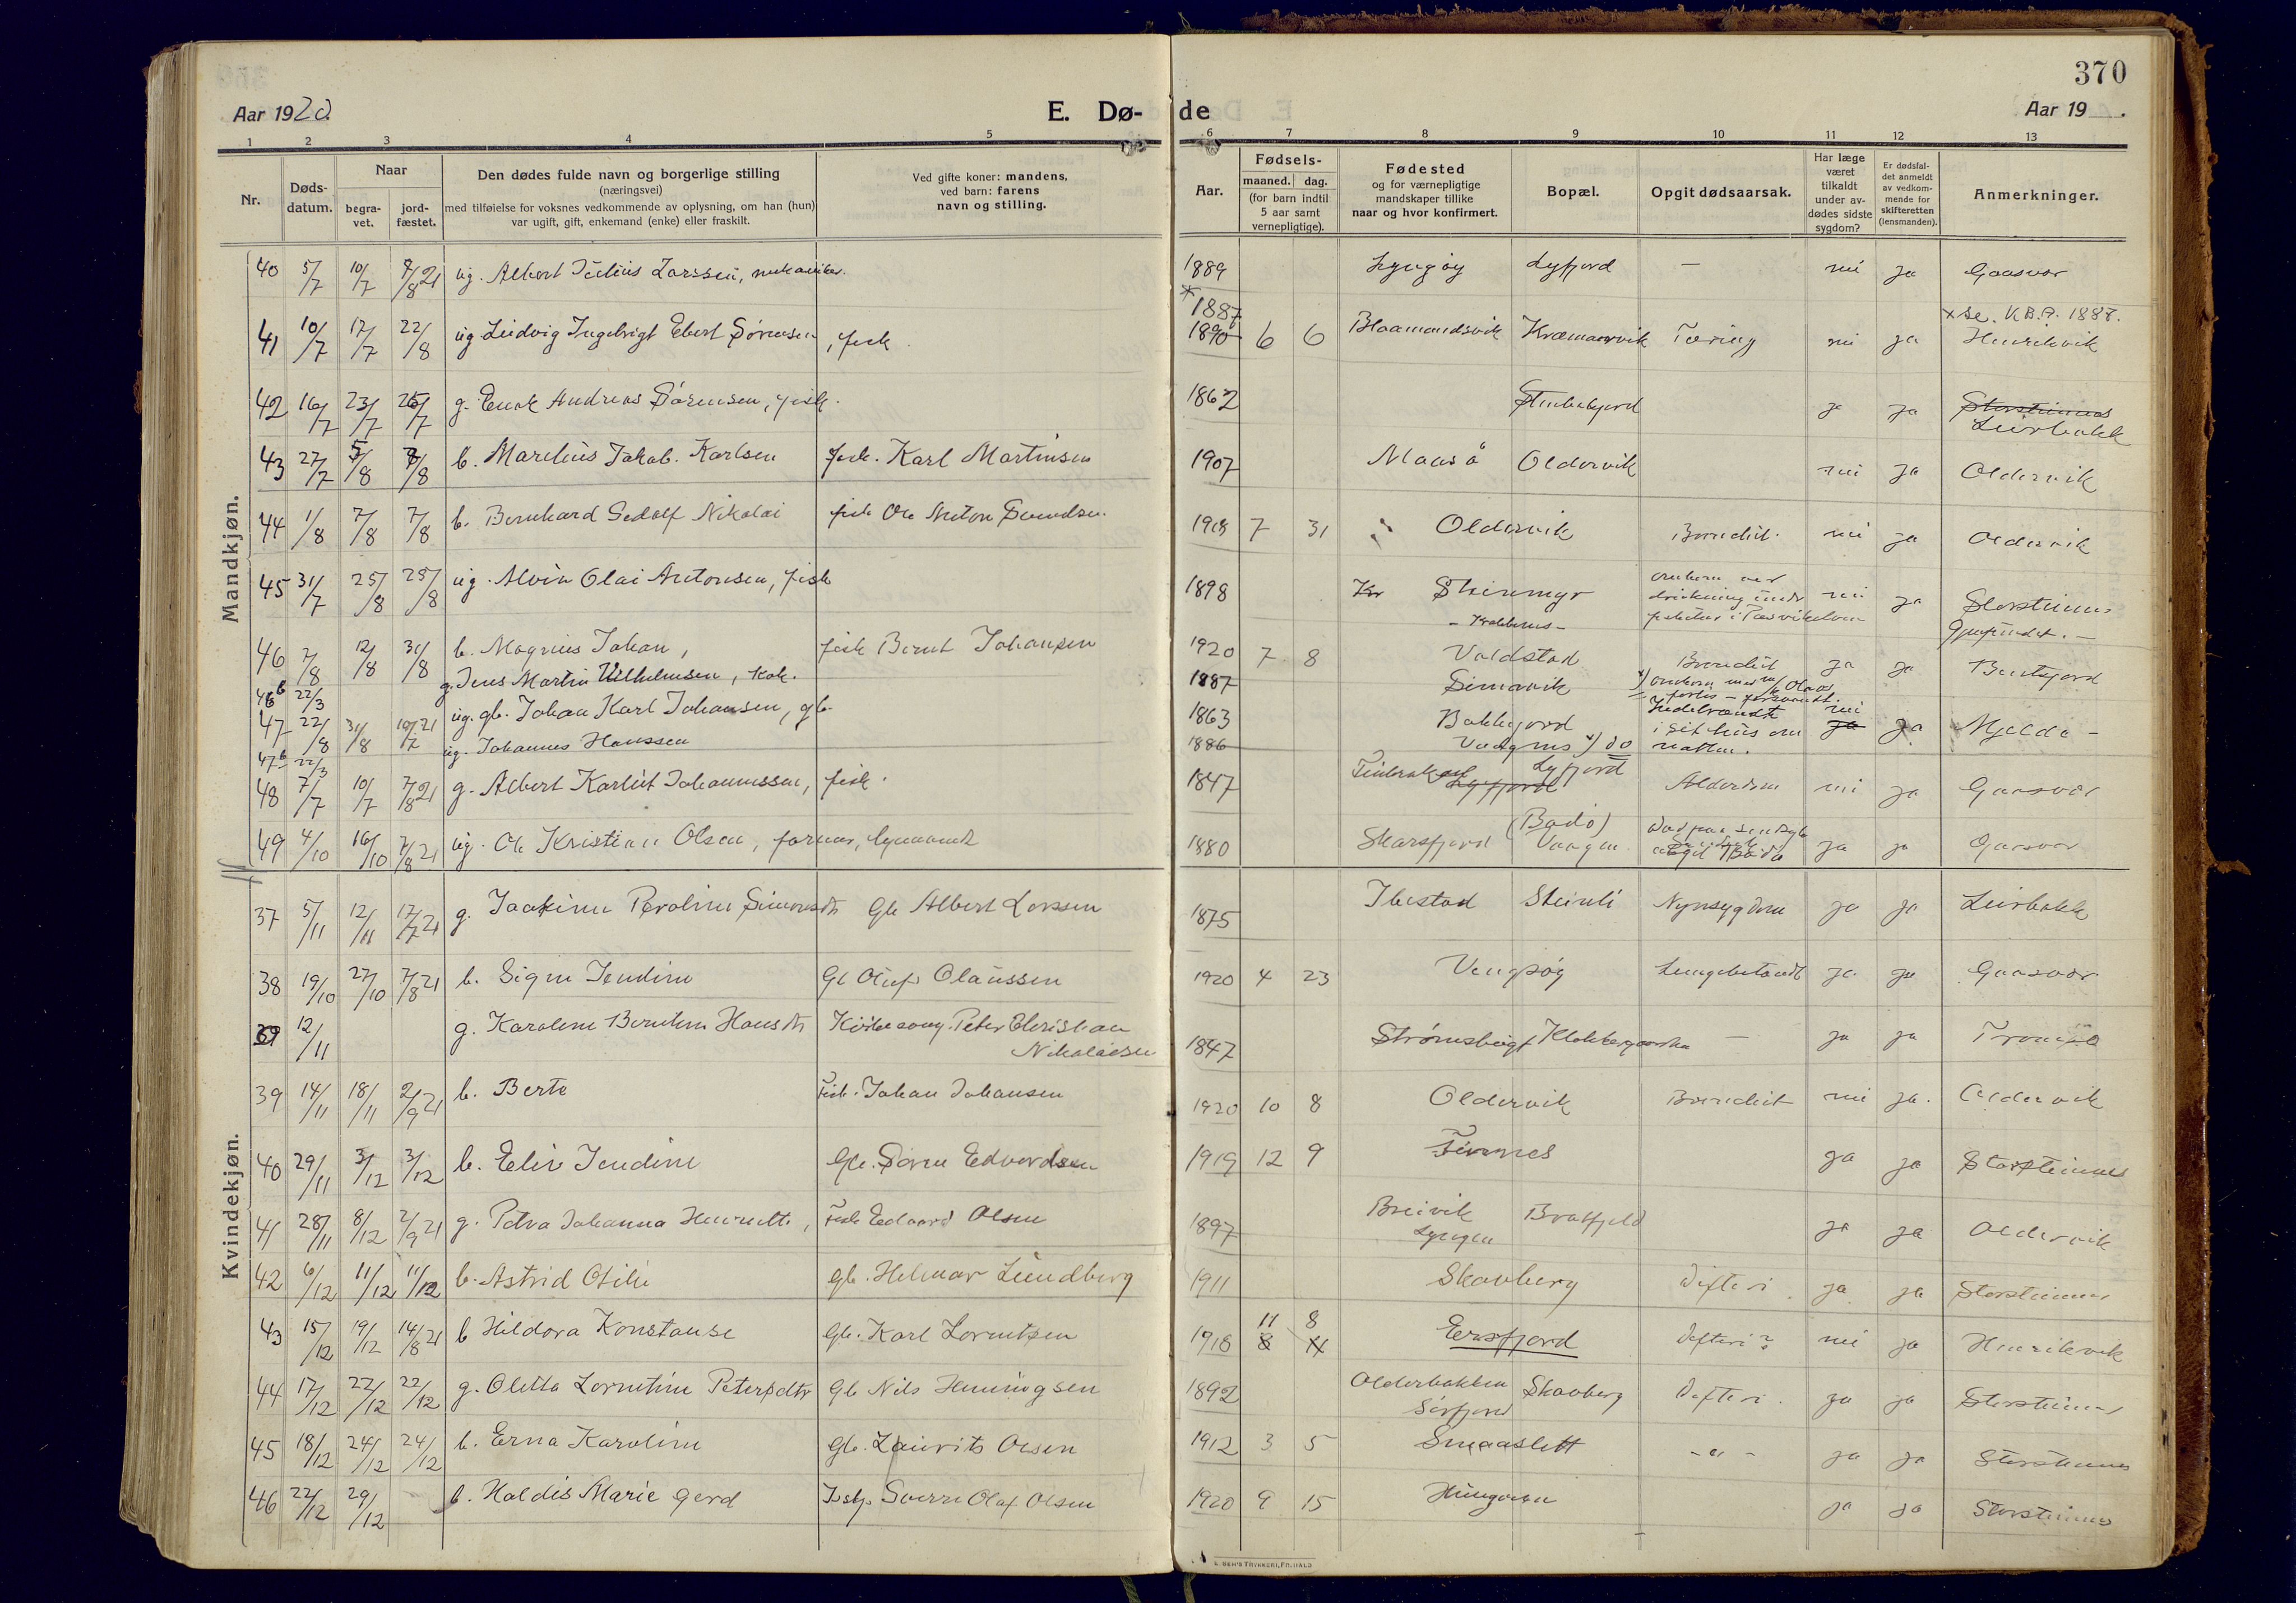 370
Aar 1920
E. Dø-
de
Aar 19 .
1 2 3 4 5 6 7 8 9 10 11 12 13
Nr.
Døds-
datum.
Naar
begra-
vet.
jord-
fæstet.
Den dødes fulde navn og borgerlige stilling
(næringsvei)
med tilføielse for voksnes vedkommende av oplysning, om han (hun)
var ugift, gift, enkemand (enke) eller fraskilt.
Ved gifte koner: mandens,
ved barn: farens
navn og stilling.
Aar.
Fødsels-
maaned. dag.
(for barn indtil
5 aar samt
vernepligtige).
Fødested
og for værnepligtige
mandskaper tillike
naar og hvor konfirmert.
Bopæl.
Opgit dødsaarsak.
Har læge
været
tilkaldt
under av-
dødes sidste
sygdom?
Er dødsfal-
det anmeldt
av vedkom-
mende for
skifteretten
(lensmanden).
Anmerkninger.
Mandkjøn.
40 5/7 10/7 7/8 21 ug. Albert Julius Larssen, 1889 Lyngøy Lyfjord — nei ja Gaasvær
* 1887 x se. K.B.P. 1887.
41 10/7 17/7 22/8 ug. Ludvig Ingebrigt Ebert Sørensen, fisk 1890 6 6 Blaamandsvik Kræmarvik Tæring nei ja Henrikvik
42 16/7 23/7 25/7 g. Enok Andreas Sørensen, fisk. 1862 ja ja Storsteinnes
Leirbakk
43 27/7 5/8 7/8 b. Marelius Jakob Karlsen fisk. Karl Martinsen 1907 Maasø Oldervik nei ja Oldervik
44 1/8 7/8 7/8 b. Bernhard Sedolf Nikolai fisk Ole Anton 1918 7 31 Oldervik nei ja Oldervik
45 31/7 25/8 25/8 ug. Alvin Olai Antonsen, fisk 1898 Steinmyr omkom ved
drukning under nei ja Storsteinnes
46 7/8 12/8 31/8 b. Magnus Johan, fisk Bernt Johansen 1920 7 8 Valdstad ja ja Bentsjord
46b 22/3 g. Jens Martin Vilhelmsen, kok. 1887 Simavik
47 22/8 31/8 10/7 21 ug. gb. Johan Karl Johansen, gb. 1863 Bakkejord Indebrændt nei ja ja Mjelde
47b 22/3 ug. Johannes Hanssen 1886 do i sit hus om
natten.
48 7/7 10/7 7/8 21 g. Albert Karlut Johannessen, fisk. 1847 Lyfjord Alderdom nei ja Gaasvær
49 4/10 16/10 7/8 21 ug. Ole Kristian Olsen, 1880 Skarsfjord (Bodø)
Vaagen ja ja Gaasvær
Kvindekjøn.
37 5/11 12/11 17/7 21 g. Jaakine Peroline Simonsdtr Gb Albert Larssen 1875 Ibestad Steinli Nyresygdom ja ja Leirbakk
38 19/10 27/10 7/8 21 b. Signe Jendine Gb Oluf Olaussen 1920 4 23 Vengsøy Lungebetændt ja ja Gaasvær
39 12/11 g. Karoline Berntine Hansdtr Peter Christian
Nikolaisen 1847 Strømsbugt — ja ja Tromsø
39 14/11 18/11 2/9 21 b. Berte Fisk. Johan Johansen 1920 10 8 Oldervik nei ja. Oldervik
40 29/11 3/12 3/12 b. Elin Jendine Gb. Søren Edvardsen 1919 12 9 Finnes ja ja Storsteinnes
41 28/11 8/12 2/9 21 g. Petra Johanna Henriette, Fisk Edvard Olsen 1897 Breivik
Lyngen Bratfjeld ja ja Oldervik
42 6/12 11/12 11/12 b. Astrid Otilie gb. Helmar Lundberg 1911 Skavberg Difteri. ja ja Storsteinnes
43 15/12 19/12 14/8 21 b Hildora Konstanse Gb. Karl Lorentsen 1918 11 8
8 11 Ersfjord Difteri? nei ja Henrikvik
44 17/12 22/12 22/12 g. Oletta Lorentine Petersdtr Gb Nils Henningsen 1892 Olderbakken
Sørfjord Skavberg Difteri. ja ja Storsteinnes
45 18/12 24/12 24/12 b. Erna Karoline Gb. Laurits Olsen 1912 3 5 Smaaslett - " - ja ja Storsteinnes
46 22/12 29/12 b. Haldis Marie Gerd Sverre Olaf Olsen 1920 9 15 ja ja Storsteinnes